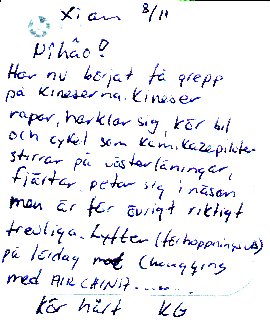 Xian 8/11
Nihao!
Har nu börjat få grepp
på kineserna. Kineser
rapar, harklar sig, kör bil
och cykel som kamikazepiloter
stirrar på västerlänningar,
fjärtar, petar sig i näsan
men är för övrigt riktigt
trevliga. Lyfter (förhoppningsvis)
på lördag mot Chongqing
med AIR CHINA........
Kör hårt KG